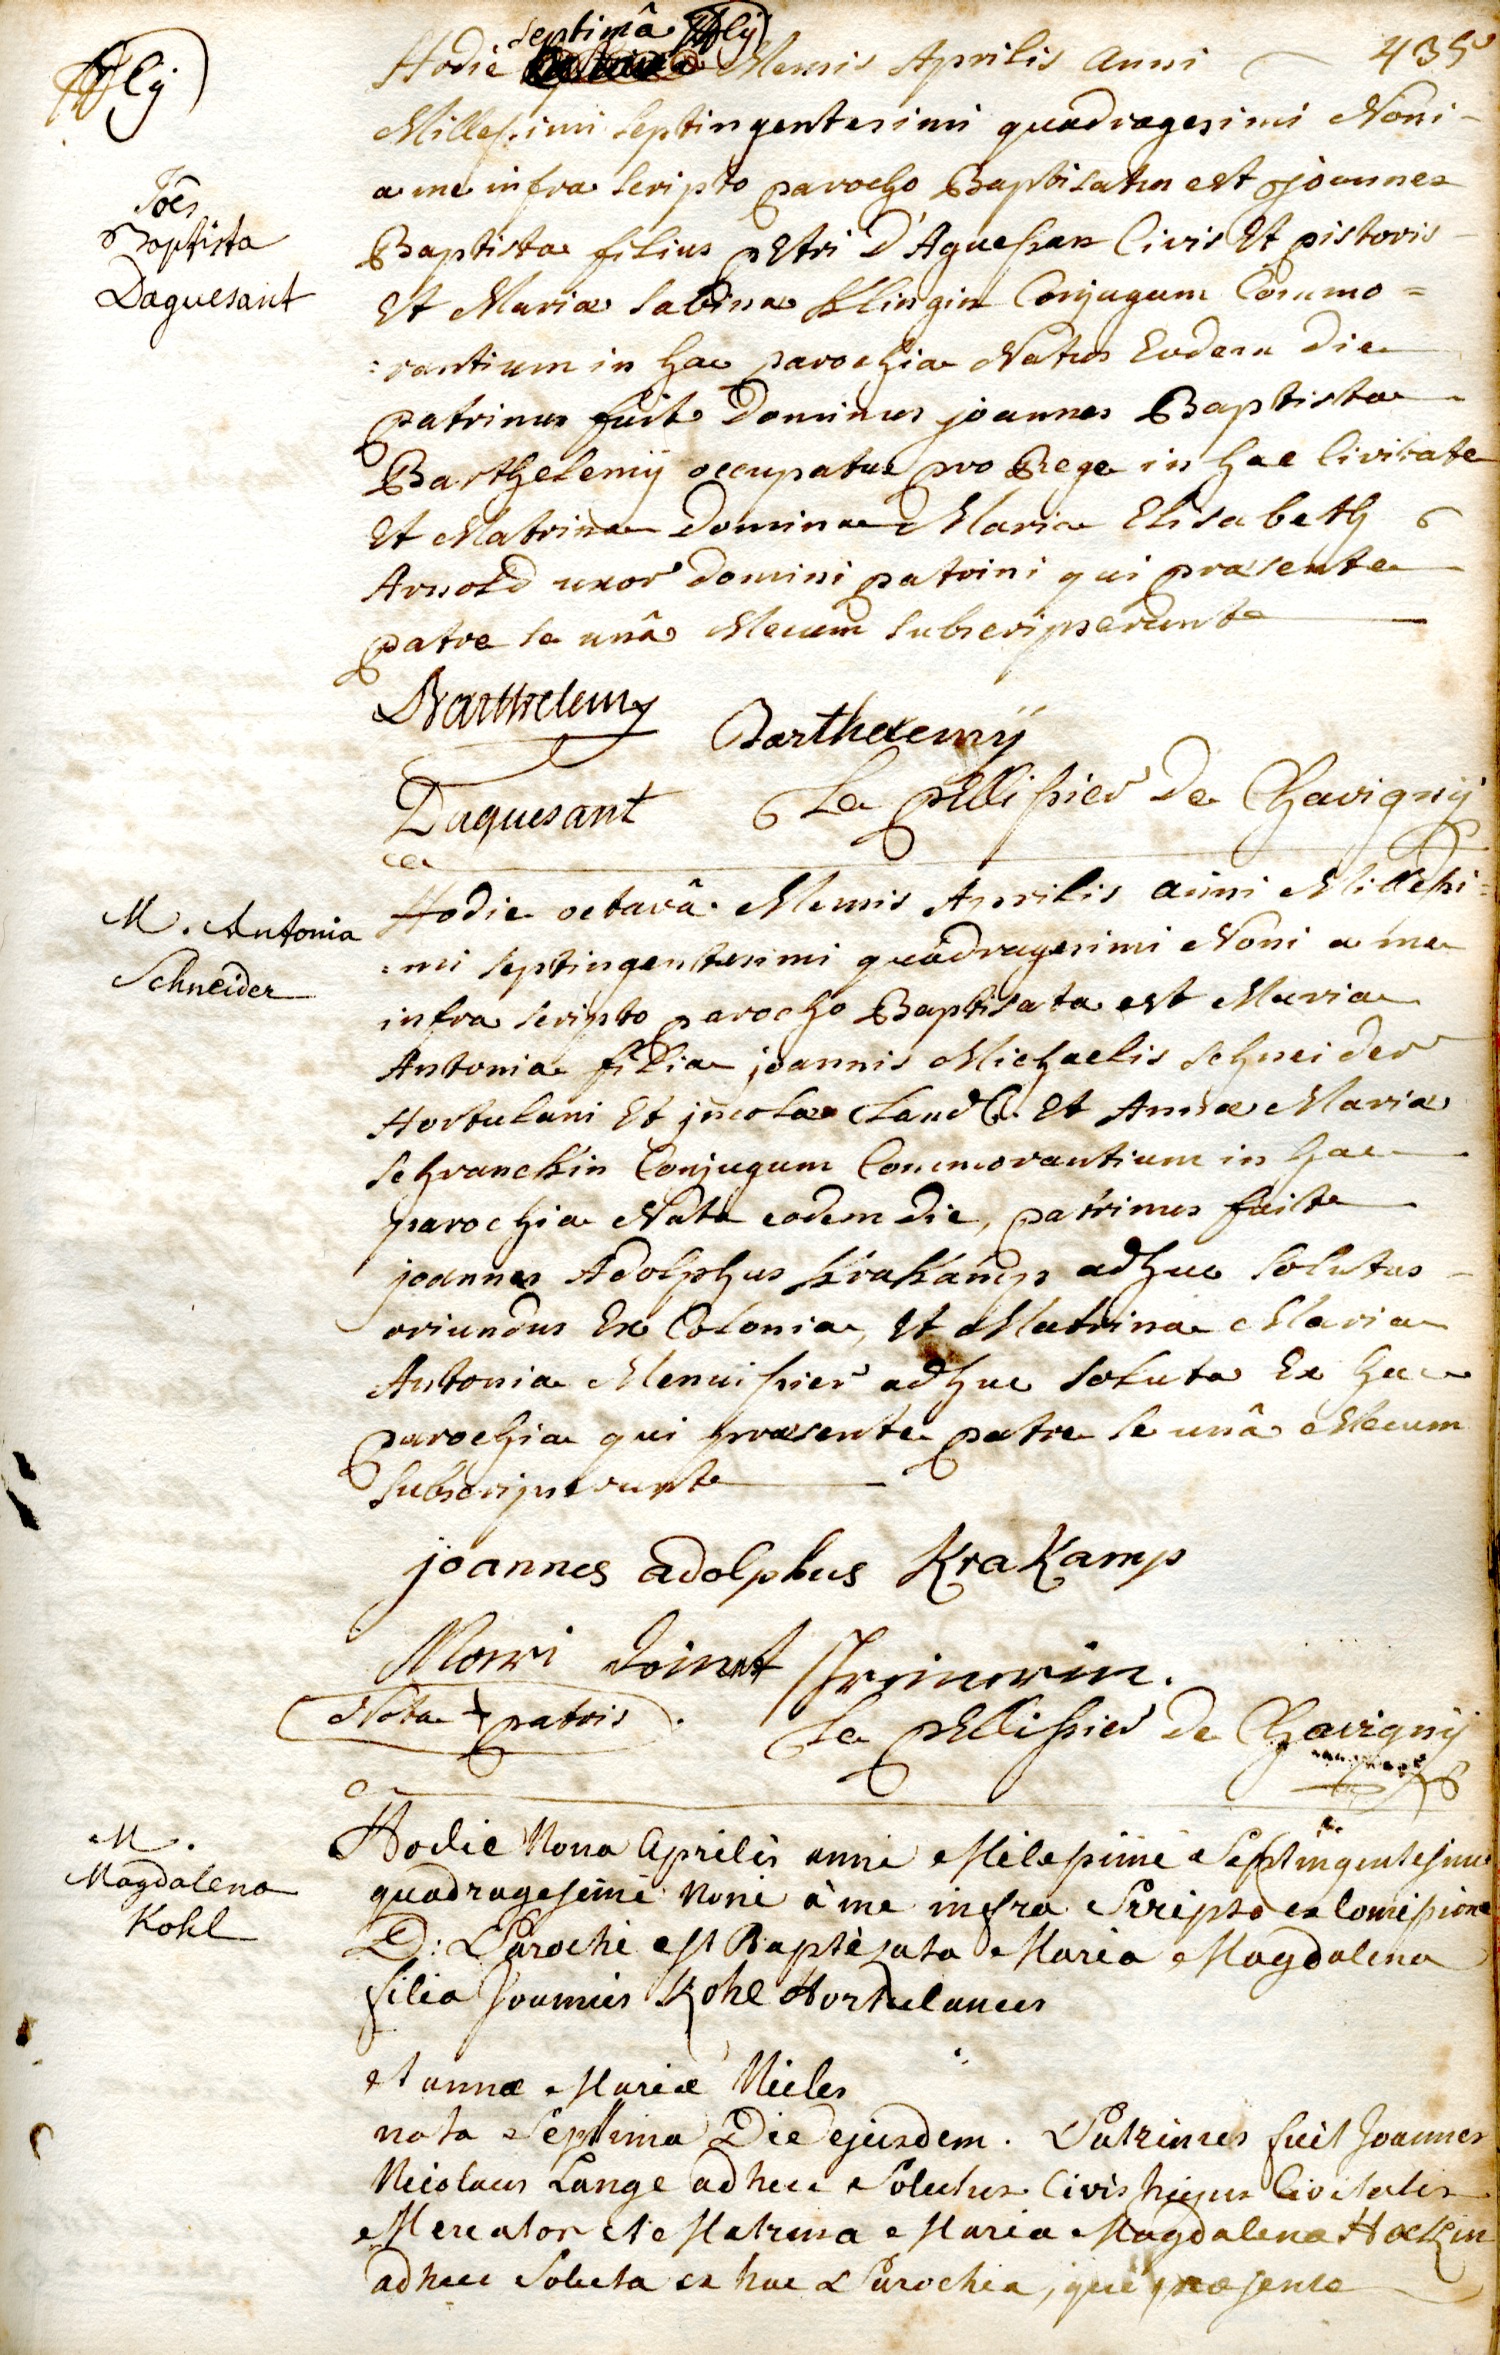 septimâ
Hodie Mensis Aprilis Anni 435
Millesimi septingentesimi quadragesimi Noni
a me infra scripto parocho Baptisatus est joannes
Joẽs
Baptista
Daguesant
Baptista filius pEtri D'Aguesan Civis Et pistoris
Et Mariæ Sabina Klingin Conjugum Commo=
:rantium in hac parochia Natus Eodem die
patrinus fuit Dominus joannes Baptista
Barthelemij occupatus pro Rege in hac Civitate
Et Matrina Domina Maria Elisabeth
Arnold uxor domini patrini qui præsente
patre se unâ Mecum subscripserunt
Barthelemy Barthelemÿ
Daguesant Le pEllissier De Chavignÿ
M. Antonia
Schneider
Hodie octavâ Mensis Aprilis anni Millesi=
:mi septingentesimi quadragesimi Noni a me
infra scripto parocho Baptisata est Maria
Antonia filia joannis Michaelis Schneider
Hortulani Et jncolæ Et Annæ Mariæ
Schranckin Conjugum Commorantium in hac
parochia Nata eodem die, patrinus fuit
joannes Adolphus Krakamp adhuc solutus
oriundus Ex Colonia, Et Matrina Maria
Antonia Menuissier adhuc soluta Ex hac
parochia qui præsente patre se unâ Mecum
subscripserunt
joannes adolphus KraKamp
Nota patris
Le pEllissier De Chavignÿ
M.
Magdalena
Kohl
Hodie Nona Aprilis anni Milesimi Septingentesimi
quadragesimi Noni à me infra Scripto ex Comissione
D: Parochi est Baptisata Maria Magdalena
filia Joannis Kohl Hortulanus
et annæ Mariæ Nicles
nata Septima Die ejusdem. Patrinus fuit Joannes
Nicolaus Lange adhuc Solutus Civis hujus Civitatis
Mercator et Matrina Maria Magdalena Hackin
adhuc Soluta ex hac Parochia, qui præsente